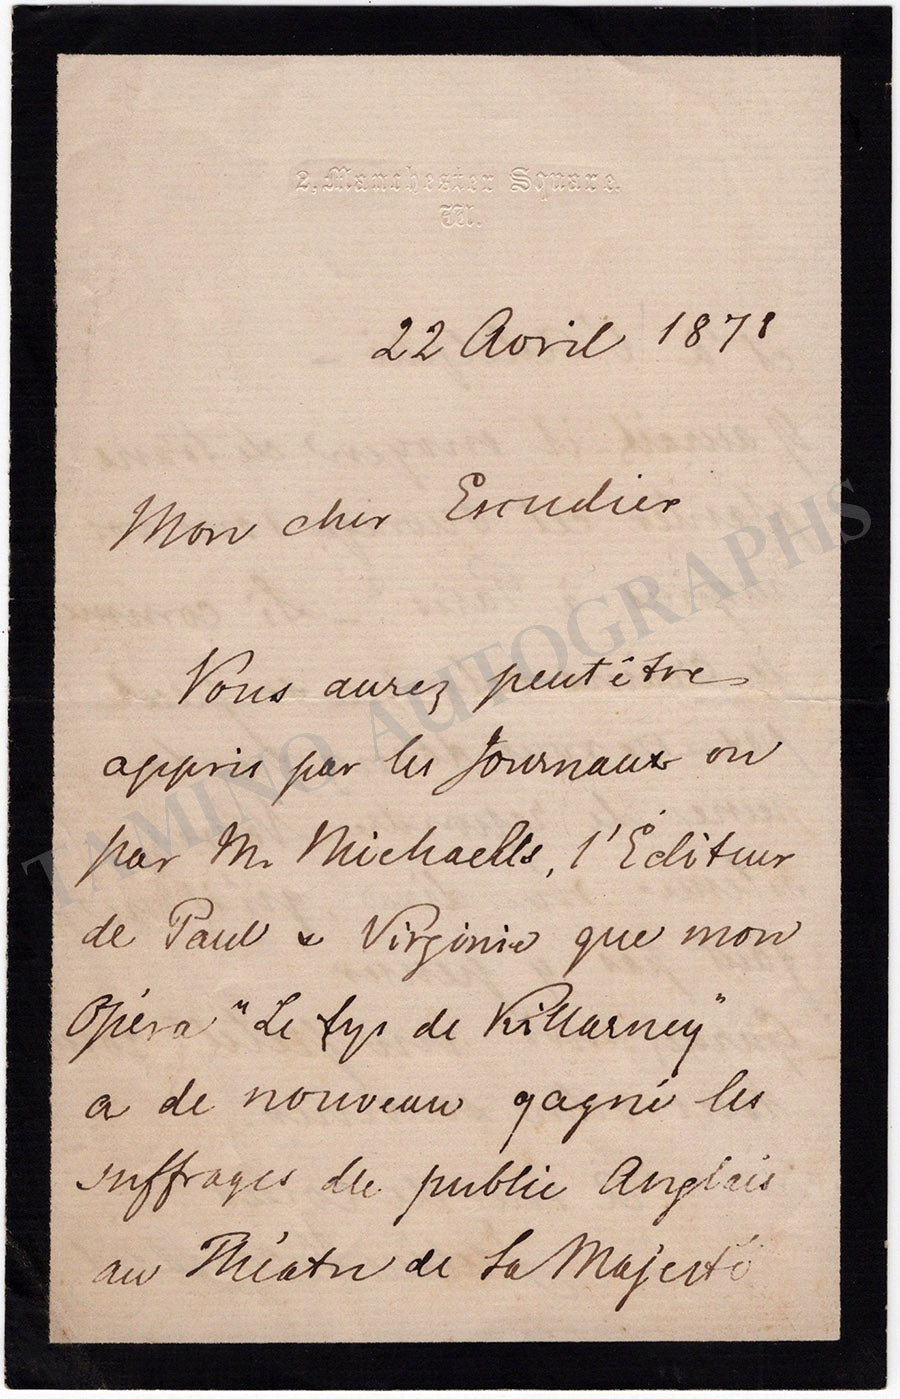 2, Manchester Square.
W.
22 Avril 1878
Mon cher Escudier
Vous aurez peutêtre
appris par les Journaux ou
par M. Michaells, l'Editeur
de Paul & Virginie que mon
Opéra "Le Lys de Killarney"
a de nouveau gagné les
suffrages du public Anglais
au Théatre de Sa Majesté
TAMINO AUTOGRAPHS